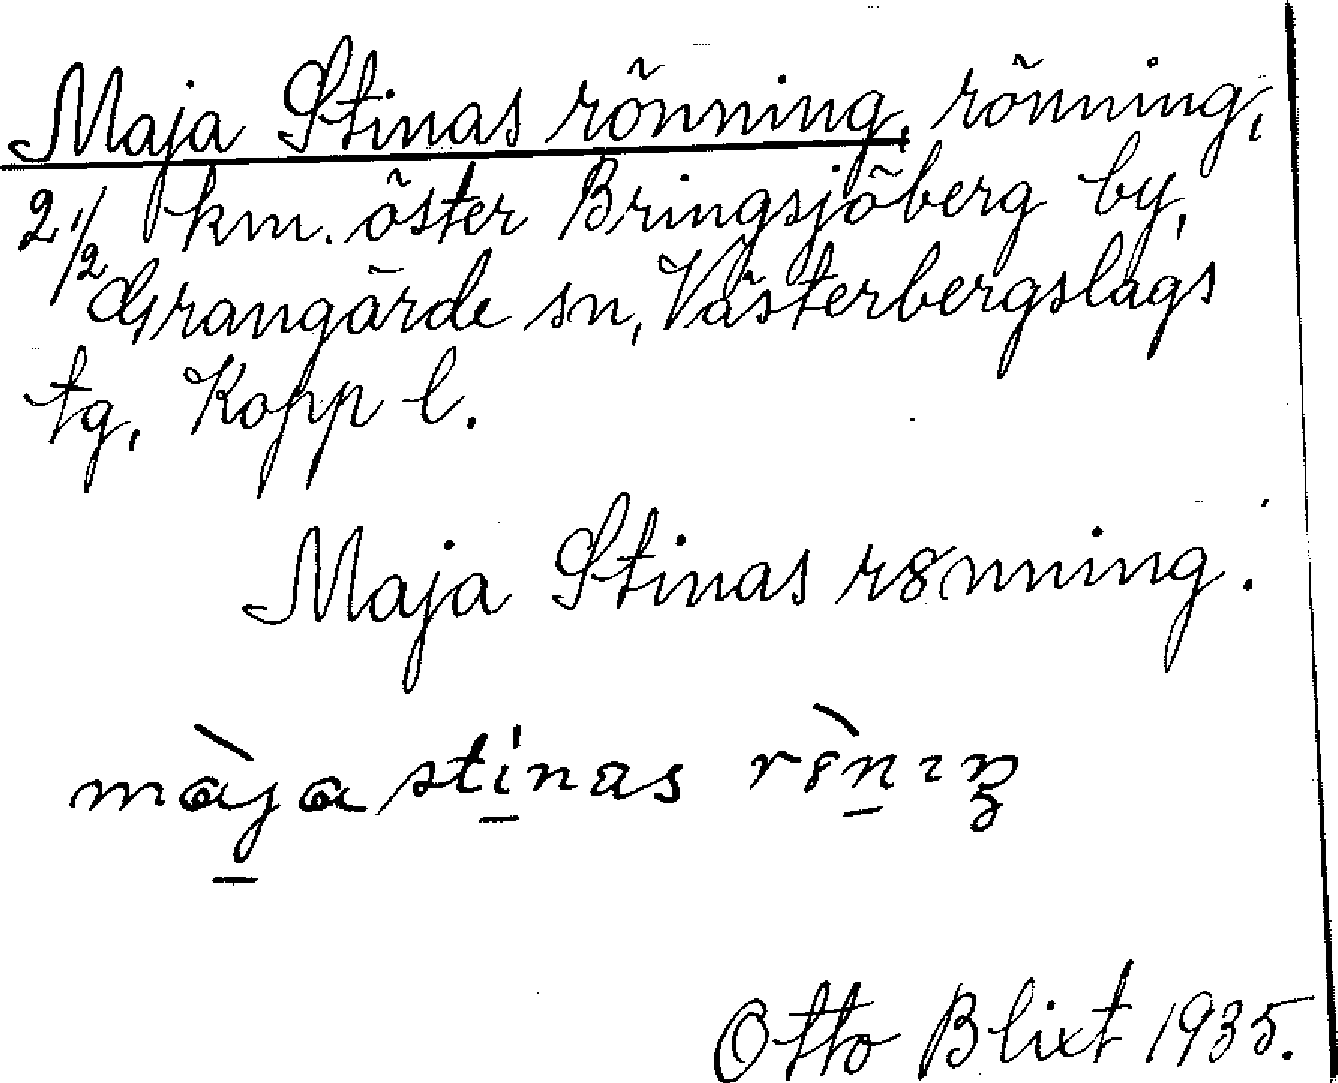 Maja Stinas rönning, rönning,
2 1/2 km. öster Bringsjöberg by,
Grangärde sn, Västerbergslags
tg, Kopp l.
Maja Stinas rȣnning.
màja stínas rȣ̀nıŋ
Otto Blixt 1935.